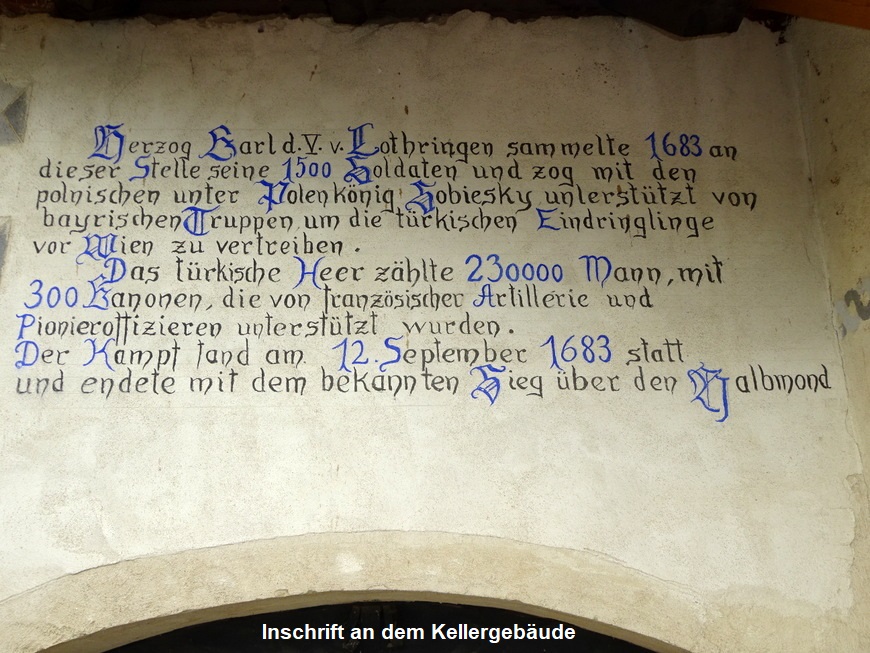 Herzog Karl d. V. v. Lothringen sammelte 1683 an
dieser Stelle seine 1500 Soldaten und zog mit den
polnischen unter Polenkönig Sobiesky unterstützt von
bayrischen Truppen um die türkischen Eindringlinge
vor Wien zu vertreiben.
Das türkische Heer zählte 230000 Mann, mit
300 Kanonen, die von französischer Artillerie und
Pionieroffizieren unterstützt wurden.
Der Kampf fand am 12. September 1683 statt
und endete mit dem bekannten Sieg über den Halbmond
Inschrift an dem Kellergebäude